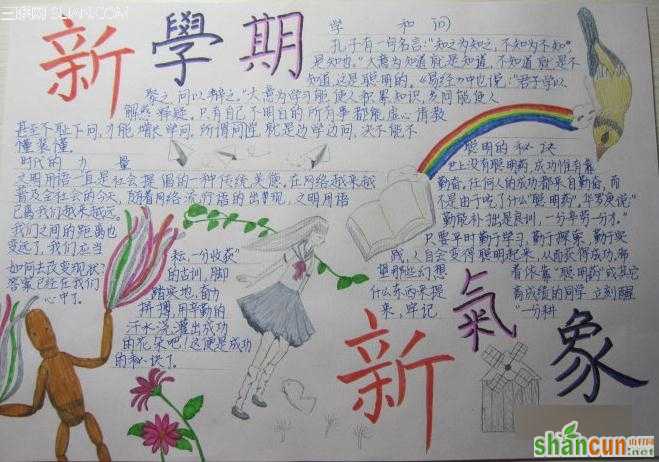 三联网 3LIAN.COM
新學期
学 和 问
孔子有一句名言:“知之为知之,不知为不知,
是知也。”大意为知道就是知道,不知道就是不
知道,这是聪明的。《易经》中也说:“君子学以
聚之,问以辩之。”大意为学习能使人积累知识,多问能使人
解惑释疑。只有自己不明白的所有事都能虚心请教
甚至不耻下问,才能增长学问,所谓问道就是边学边问,决不能不
懂装懂。
时代的力量
文明用语一直是社会提倡的一种传统美德,在网络越来越
普及全社会的今天,随着网络流行语的出现,文明用语
已离我们越来越远。
我们之间的距离也
变远了,我们应当
如何去改变现状?
答案已经在我们
心中了。
聪明的秘诀
世上没有聪明药,成功惟有靠
勤奋,任何人的成功都来自勤奋,而
不是由于吃了什么“聪明药”,华罗庚说:“
勤能补拙是良训,一分辛劳一分才。”
只要平时勤于学习,勤于探索,勤于实
践,人自会变得聪明起来,从而获得成功,希
望那些幻想着依靠“聪明药”或其它
什么东西来提高成绩的同学立刻醒
来,牢记“一分耕
耘,一分收获”
的古训,脚
踏实地,奋力
拼搏,用辛勤的
汗水浇灌出成功
的花朵吧!这便是成功
的秘诀了。
新氣象
shancun
山村网
.net